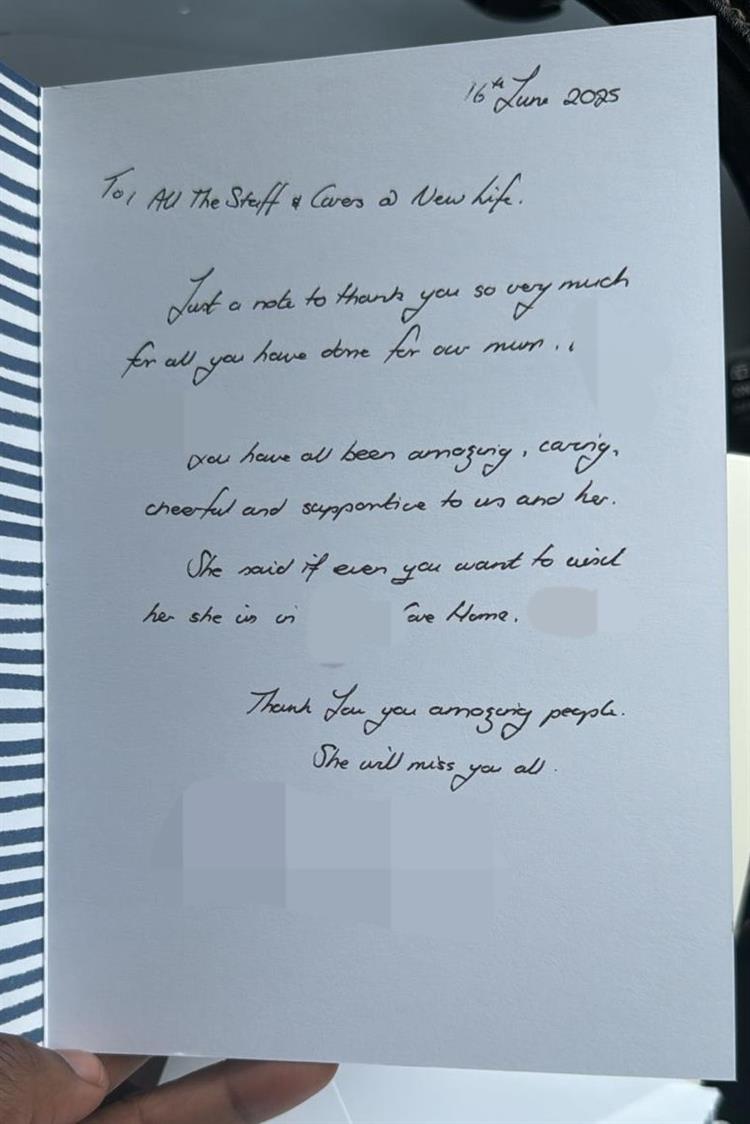 16th June 2025
To, All The Staff & Carers @ New Life.
Just a note to thank you so very much
for all you have done for our mum..
You have all been amazing, caring,
cheerful and supportive to us and her.
She said if ever you want to visit
her she is in Care Home.
Thank You you amazing people.
She will miss you all.